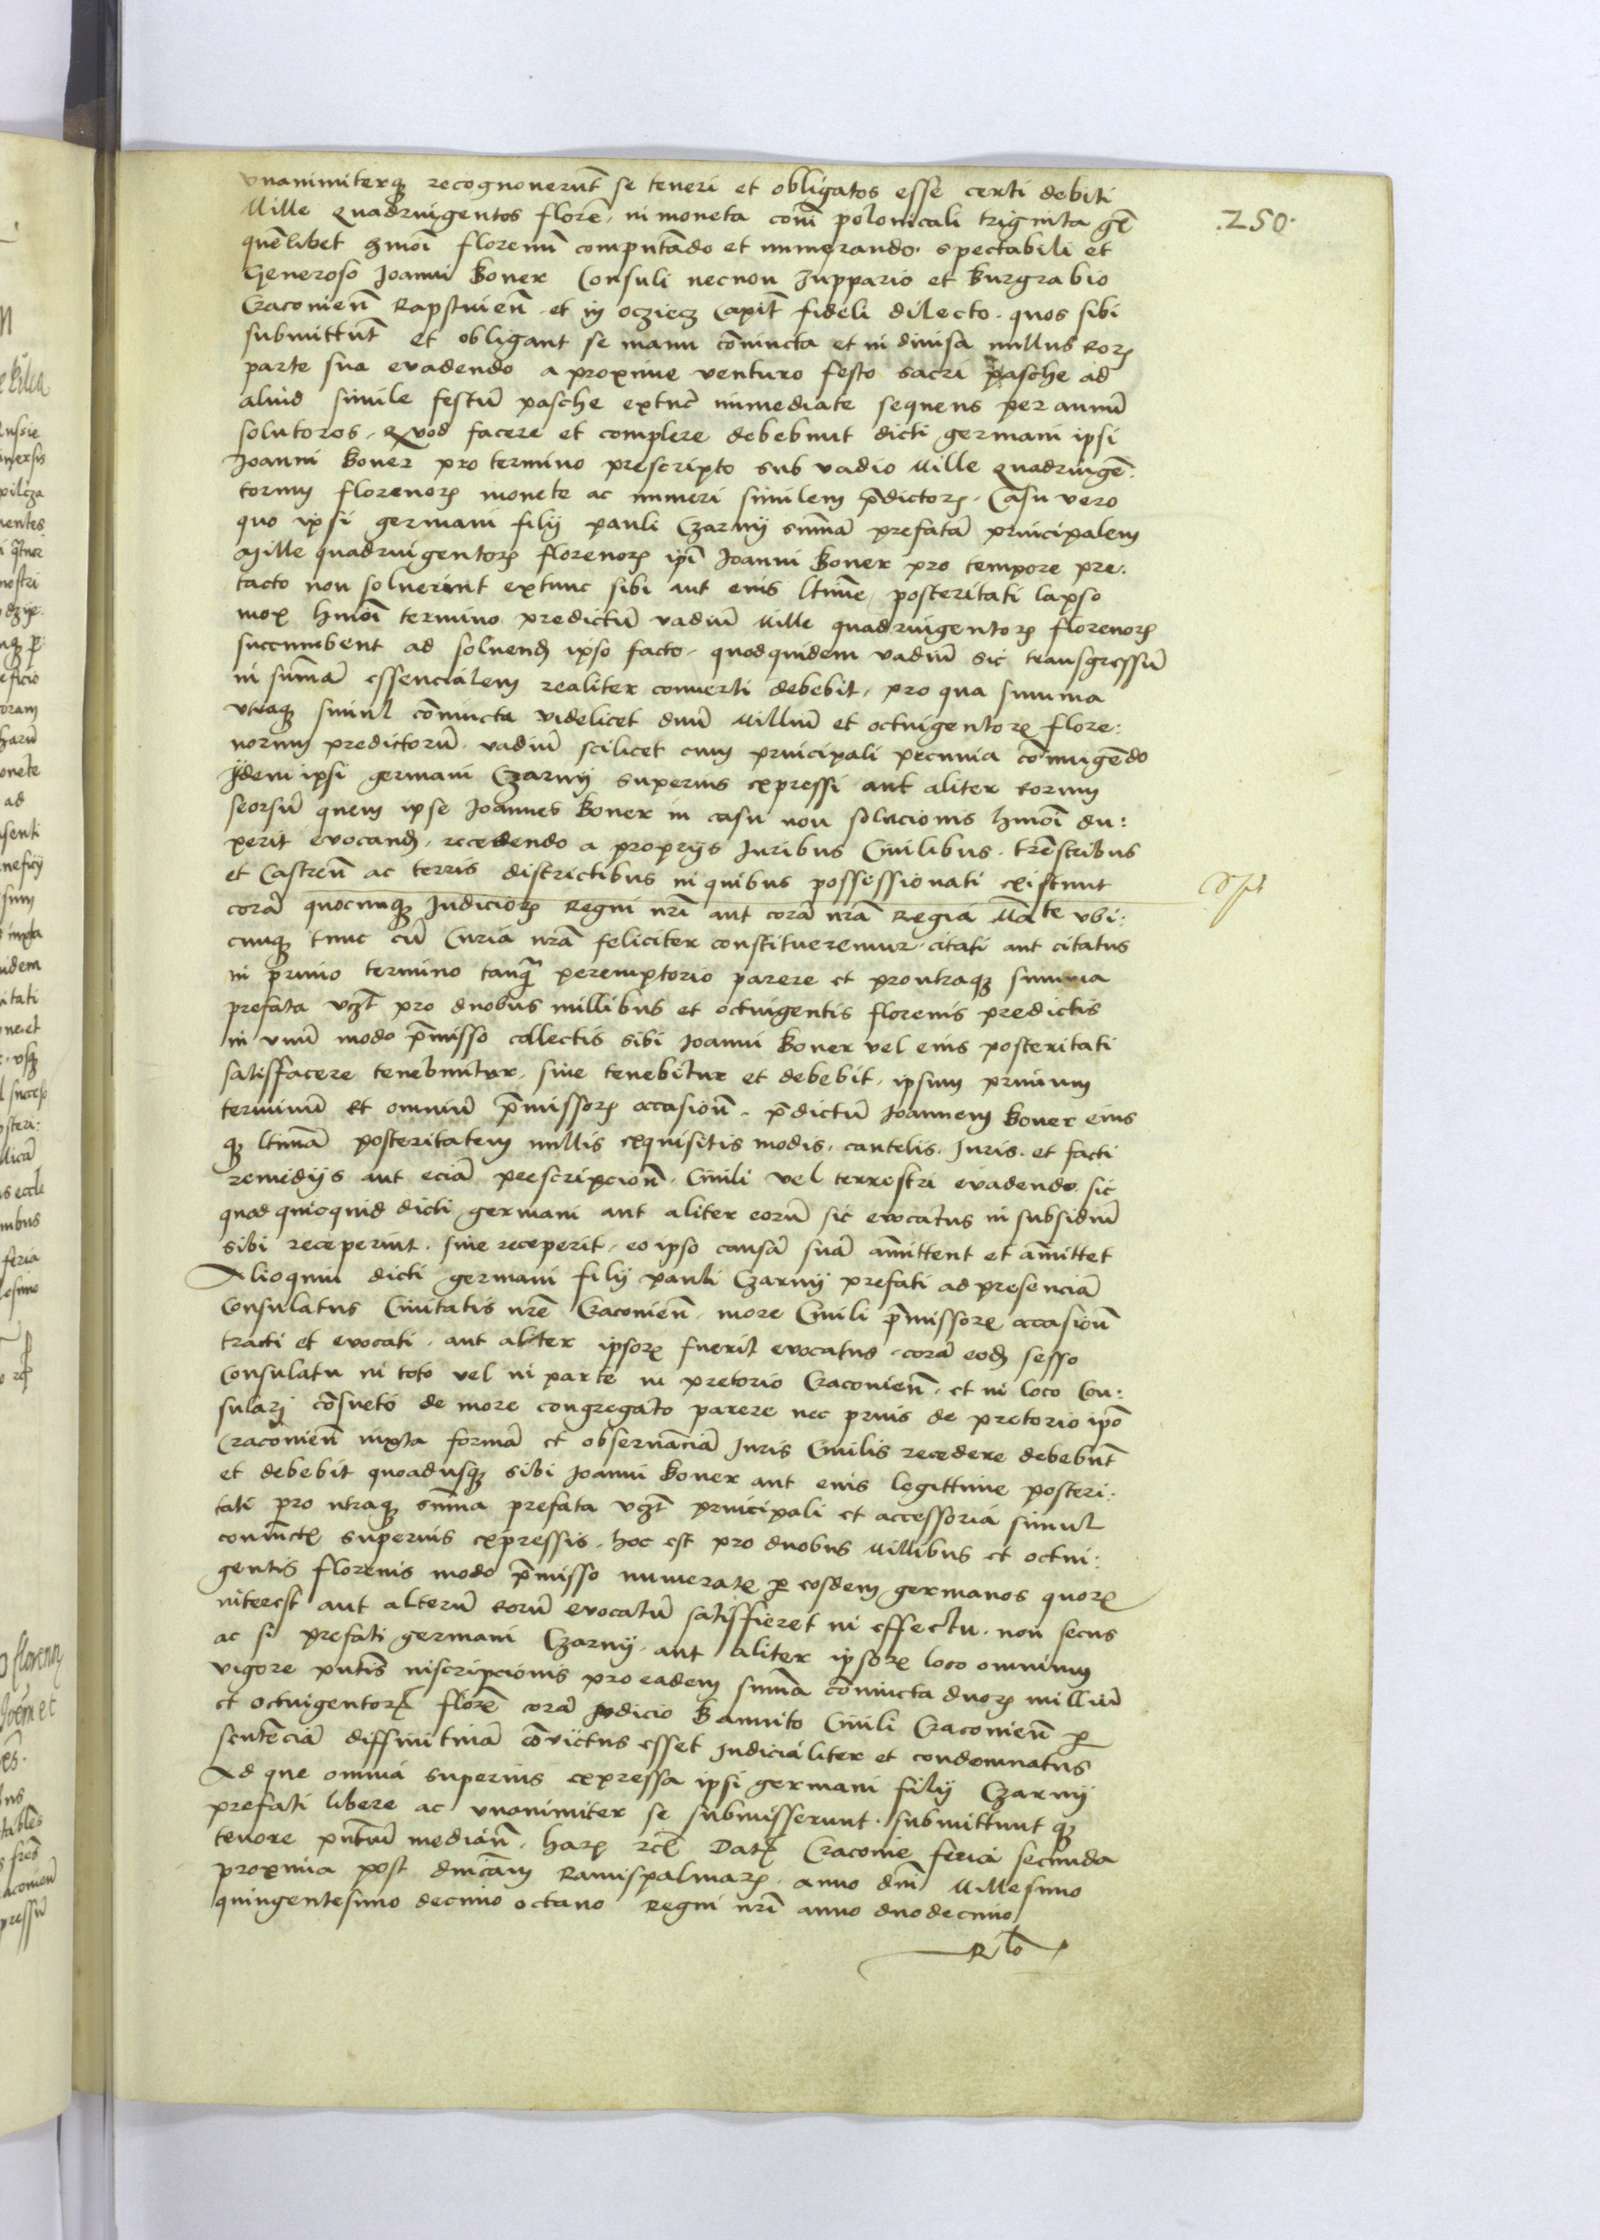 .250.
vnanimiterq recognoverūt se teneri et obligatos esse certi debiti
Mille Quadringentos florē. in moneta cōi polonicali triginta gr
quēlibet hmōi florenū computādo et numerando. spectabili et
Generoso Joanni Boner Consuli necnon Zuppario et Burgrabio
Cracovieñ Rapstineñ et in ocziecz Capit̄ fideli dilecto. quos sibi
submittūt et obligant se manu cōiuncta et indivisa nullus eorz
parte sua evadendo a proxime venturo festo sacri pasche ad
aliud simile festū pasche extūc immediate sequens per annū
soluturos. Quod facere et complere debebunt dicti germani ipsi
Joanni Boner pro termino prescripto sub vadio Mille Quadringē:
torum florenorz monete ac numeri similem p̄dictorz. Casu vero
quo ipsi germani filij pauli Czarnij sum̄ā prefatā principalem
Mille quadringentorz florenorz ip̄i Joanni Boner pro tempore pre:
tacto non soluerint extunc sibi aut eius ltime posteritati lapso
mox hmōi termino predictū vadiū Mille quadringentorz florenorz
succumbent ad soluend ipso facto. quodquidem vadiū sic transgressū
in sum̄ā essencialem realiter conuerti debebit. pro qua summa
vtraq simul cōiuncta videlicet duū Milliū et octuigentorz flore:
norum predictorū. vadiū scilicet cum principali pecunia cōiungēdo
Jdem ipsi germani Czarnij superius expressi aut aliter eorum
seorsū quem ipse Joannes Boner in casu non solucionis hmōi du:
xerit evocand. recedendo a proprijs Juribus Ciuilibus. trēstribus
et Castreñ ac terris districtibus in quibus possessionati existunt
corā quocunq Judiciorz Regni nrī aut corā nrā Regia Mate vbi:
cunq tunc cū Curia nrā feliciter constitueremur. citati aut citatus
in primo termino tanq peremptorio parere et pro vtraq summa
prefata vczt pro duobus millibus et octuigentis florenis predictis
in vnū modo p̄misso collectis sibi Joanni Boner vel eius posteritati
satisfacere tenebuntur. siue tenebitur et debebit. ipsum primum
terminū et omniū p̄missorz occasioñ. p̄dictū Joannem Boner eius
q ltimā posteritatem nullis exquisitis modis. cautelis. Juris. et facti
remedijs aut eciā prescripcioñ. Ciuili vel terrestri evadendo. sic
quod quicquid dicti germani aut aliter eorū sic evocatus in subsidiū
sibi receperint. siue receperit. eo ipso causā suā am̄ittent et am̄ittet
Alioquin dicti germani filij pauli Czarnij prefati ad presenciā
Consulatus Ciuitatis nrē Cracovieñ. more Ciuili p̄missorz occasioñ
tracti et evocati. aut aliter ipsorz fuerit evocatus. corā eod sesso
Consulatu in toto vel in parte in pretorio Cracovieñ. et in loco Con:
sulari cōsueto de more congregato parere nec prius de pretorio ipō
Cracovieñ iuxta formā et obseruāciā Juris Ciuilis recedere debebūt
et debebit quoadusq sibi Joanni Boner aut eius legittime posteri:
tati pro vtraq sum̄a prefata vczt principali et accessoria simul
coniūctz superius expressis. hoc est pro duobus Millibus et octui:
gentis florenis modo p̄misso numeratz p eosdem germanos quorz
interest aut alterū eorū evocatū satisfieret in effectu. non secus
ac si prefati germani Czarnij. aut aliter ipsorz loco omnium
vigore pn̄tis inscripcionis pro eadem sum̄a cōiuncta duorz milliū
et octuigentorz florē corā Judicio Bannito Ciuili Cracovieñ p
sentēciā diffinitiuā cōvictus esset Judicialiter et condemnatus
Ad que omnia superius expressa ipsi germani filij Czarnij
prefati libere ac vnanimiter se submisserunt. submittunt q
tenore pn̄tiū mediañ. harz rcz Datz Cracovie feria secunda
proxima post dnicam Ramispalmarz. anno dnī Millesimo
quingentesimo decimo octauo Regni nrī anno duodecimo
Rlo